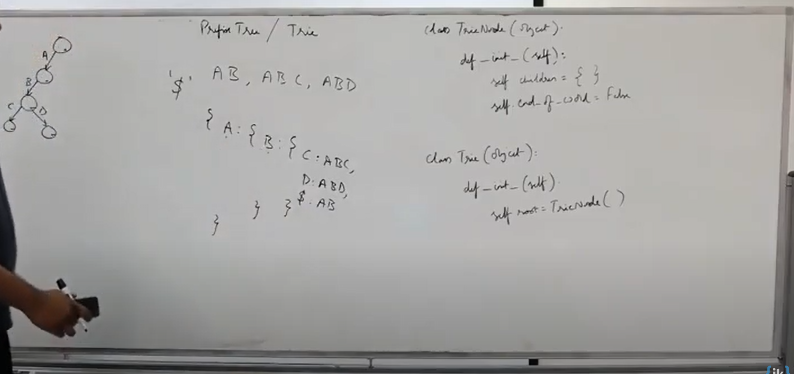 A
B
C D
Prefix Tree / Trie
'$' AB, ABC, ABD
{ A: { B: { C: ABC,
D: ABD,
} } $: AB
}
class TrieNode (object):
def _init_ (self):
self children = { }
self.end_of_word = False
class Trie (object):
def _init_ (self).
self root = TrieNode ( )
ik